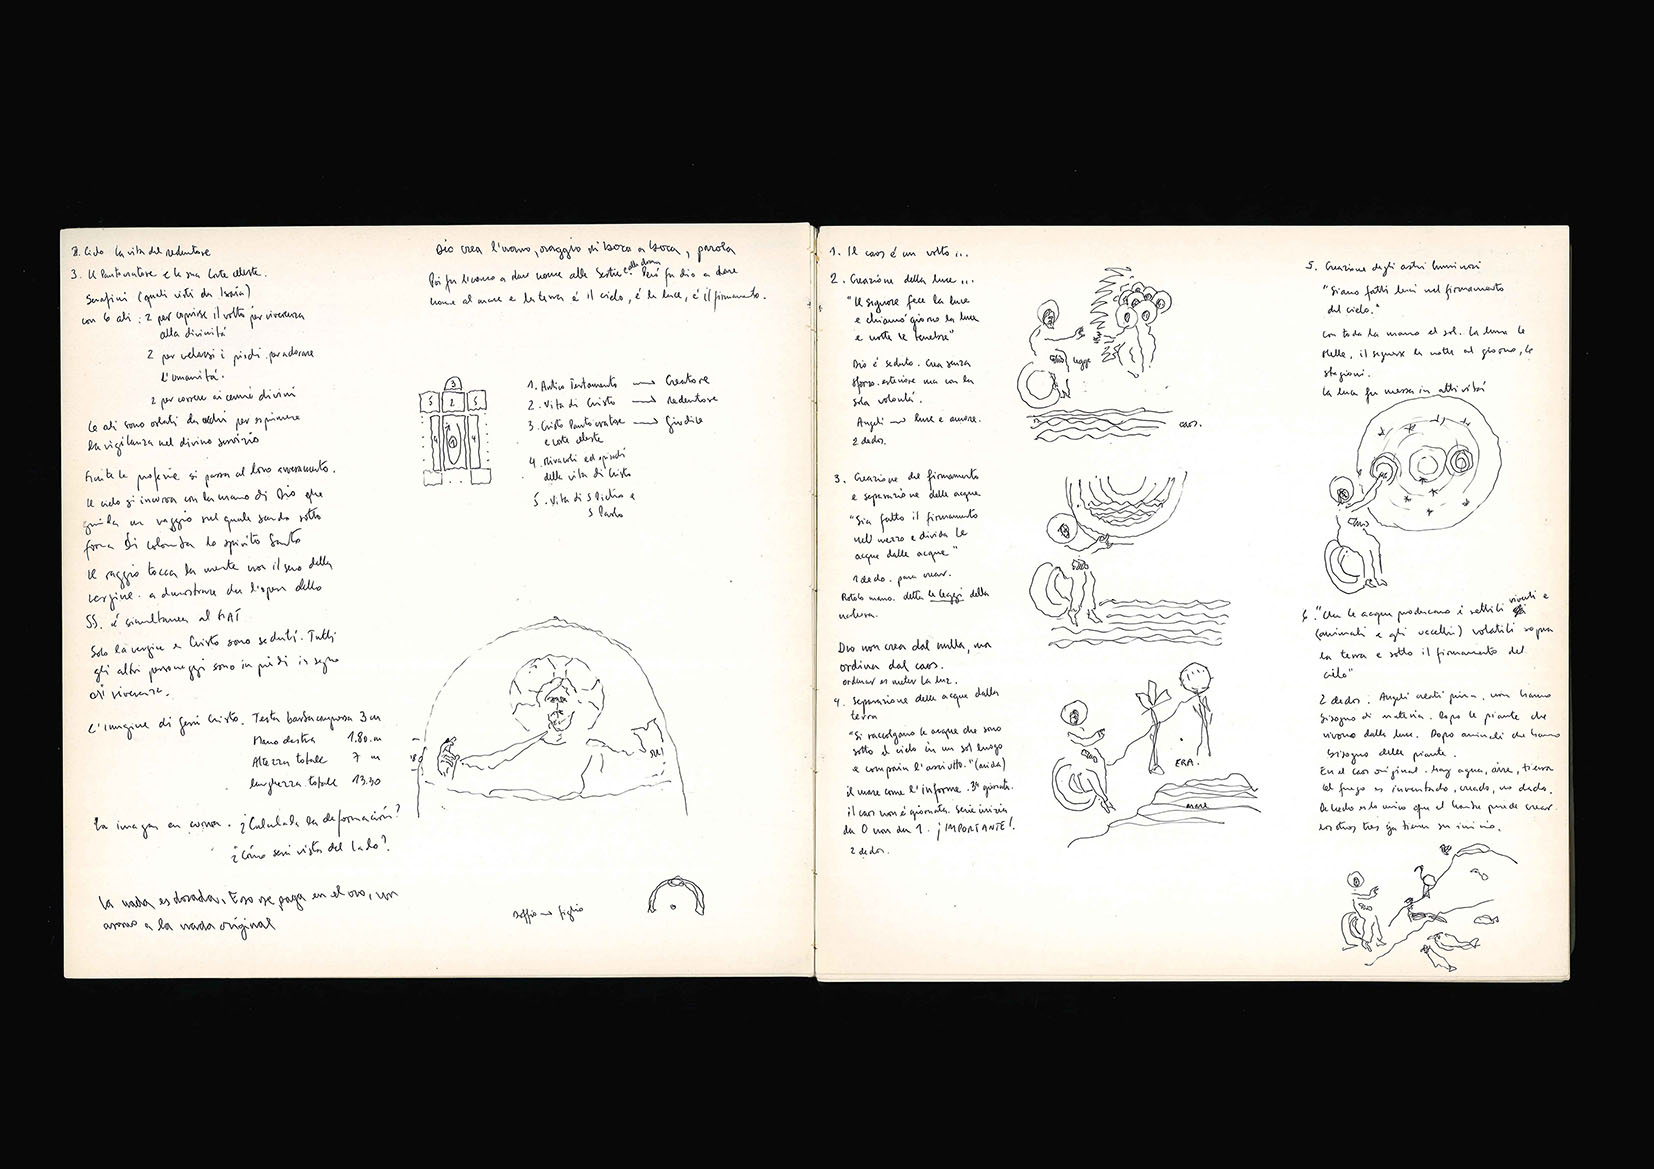 2. Ciclo la vita del redentore
3. Il Pantocratore e la sua Corte celeste.
Serafini (quelli visti da Isaia)
con 6 ali: 2 per coprirse il volto per riverenza
alla divinità
2 per velarsi i piedi per adorare
l'umanità.
2 per correre ai cenni divini
Le ali sono ornati da occhi per esprimere
la vigilanza nel divino servizio
Finite le profezie si passa al loro avveramento.
Il cielo si incurva con la mano di Dio che
guida un raggio sul quale scende sotto
forma di colomba lo spirito Santo
Il raggio tocca la mente non il seno della
vergine. a dimostrare che l'opera dello
SS. é simultanea al FIAT
Solo la vergine e Cristo sono seduti. Tutti
gli altri personaggi sono in piedi in segno
di riverenza.
L'imagine di Gesù Cristo. Testa barba compresa 3 m
Mano destra 1.80 m
Altezza totale 7 m
lunghezza totale 13.30
La imagen en curva. ¿Calculada la deformación?
¿Cómo seria vista del lado?
La nada es dorada. Eso se paga en el oro, con
a la nada original
Dio crea l'uomo, raggio di bocca a bocca, parola
Poi fu l'uomo a dare nome alle bestie e alla donna. Però fu dio a dare
nome al mare e la terra é il cielo, é la luce, é il firmamento.
3
5 2 5
4 1 4
1. Antico Testamento → Creatore
2. Vita di Cristo → redentore
3. Cristo Pantocratore → Giudice
e corte celeste
4. Miracoli ed episodi
della vita di Cristo
5. Vita di S Pietro e
S Paolo
soffio → figlio
1. Il caos é un volto ...
2. Creazione della luce ...
"Il signore fece la luce
e chiamó giorno la luce
e notte le tenebre"
Dio é seduto. Crea senza
sforzo esteriore ma con la
sola volontá.
Angeli → luce e amore.
2 dedos.
legge
caos.
3. Creazione del firmamento
e separazione delle acque
"Sia fatto il firmamento
nell mezzo e divida le
acque dalle acque"
1 dedo. para crear.
Rotolo mano. detta le leggi della
natura.
Dio non crea dal nulla, ma
ordina dal caos.
ordinar es meter la luz.
4. Separazione delle acque dalla
terra
"Si raccolgano le acque che sono
sotto il cielo in un sol luogo
e compaia l'asciutto." (arida)
il mare come l'informe. 3ª giornata.
il caos non é giornata. Serie inizia
da 0 non da 1. ¡IMPORTANTE!.
2 dedos.
ERA.
mare
5. Creazione degli astri luminosi
"Siano fatti luci nel firmamento
del cielo."
con toda la mano el sol. La luna le
stelle. il segnare la notte al giorno, le
stagioni.
la luce fu messa in attivitá
6. "Che le acque producano i rettili viventi e
(animali e gli uccelli) volatili sopra
la terra e sotto il firmamento del
cielo"
2 dedos. Angeli creati prima, non hanno
bisogno di materia. Dopo le piante che
vivono dalla luce. Dopo animali che hanno
bisogno delle piante.
En el caos original. Hay agua, aire, tierra
el fuego es inventado, creado, no dado.
los otros tres ya tienen su inicio.